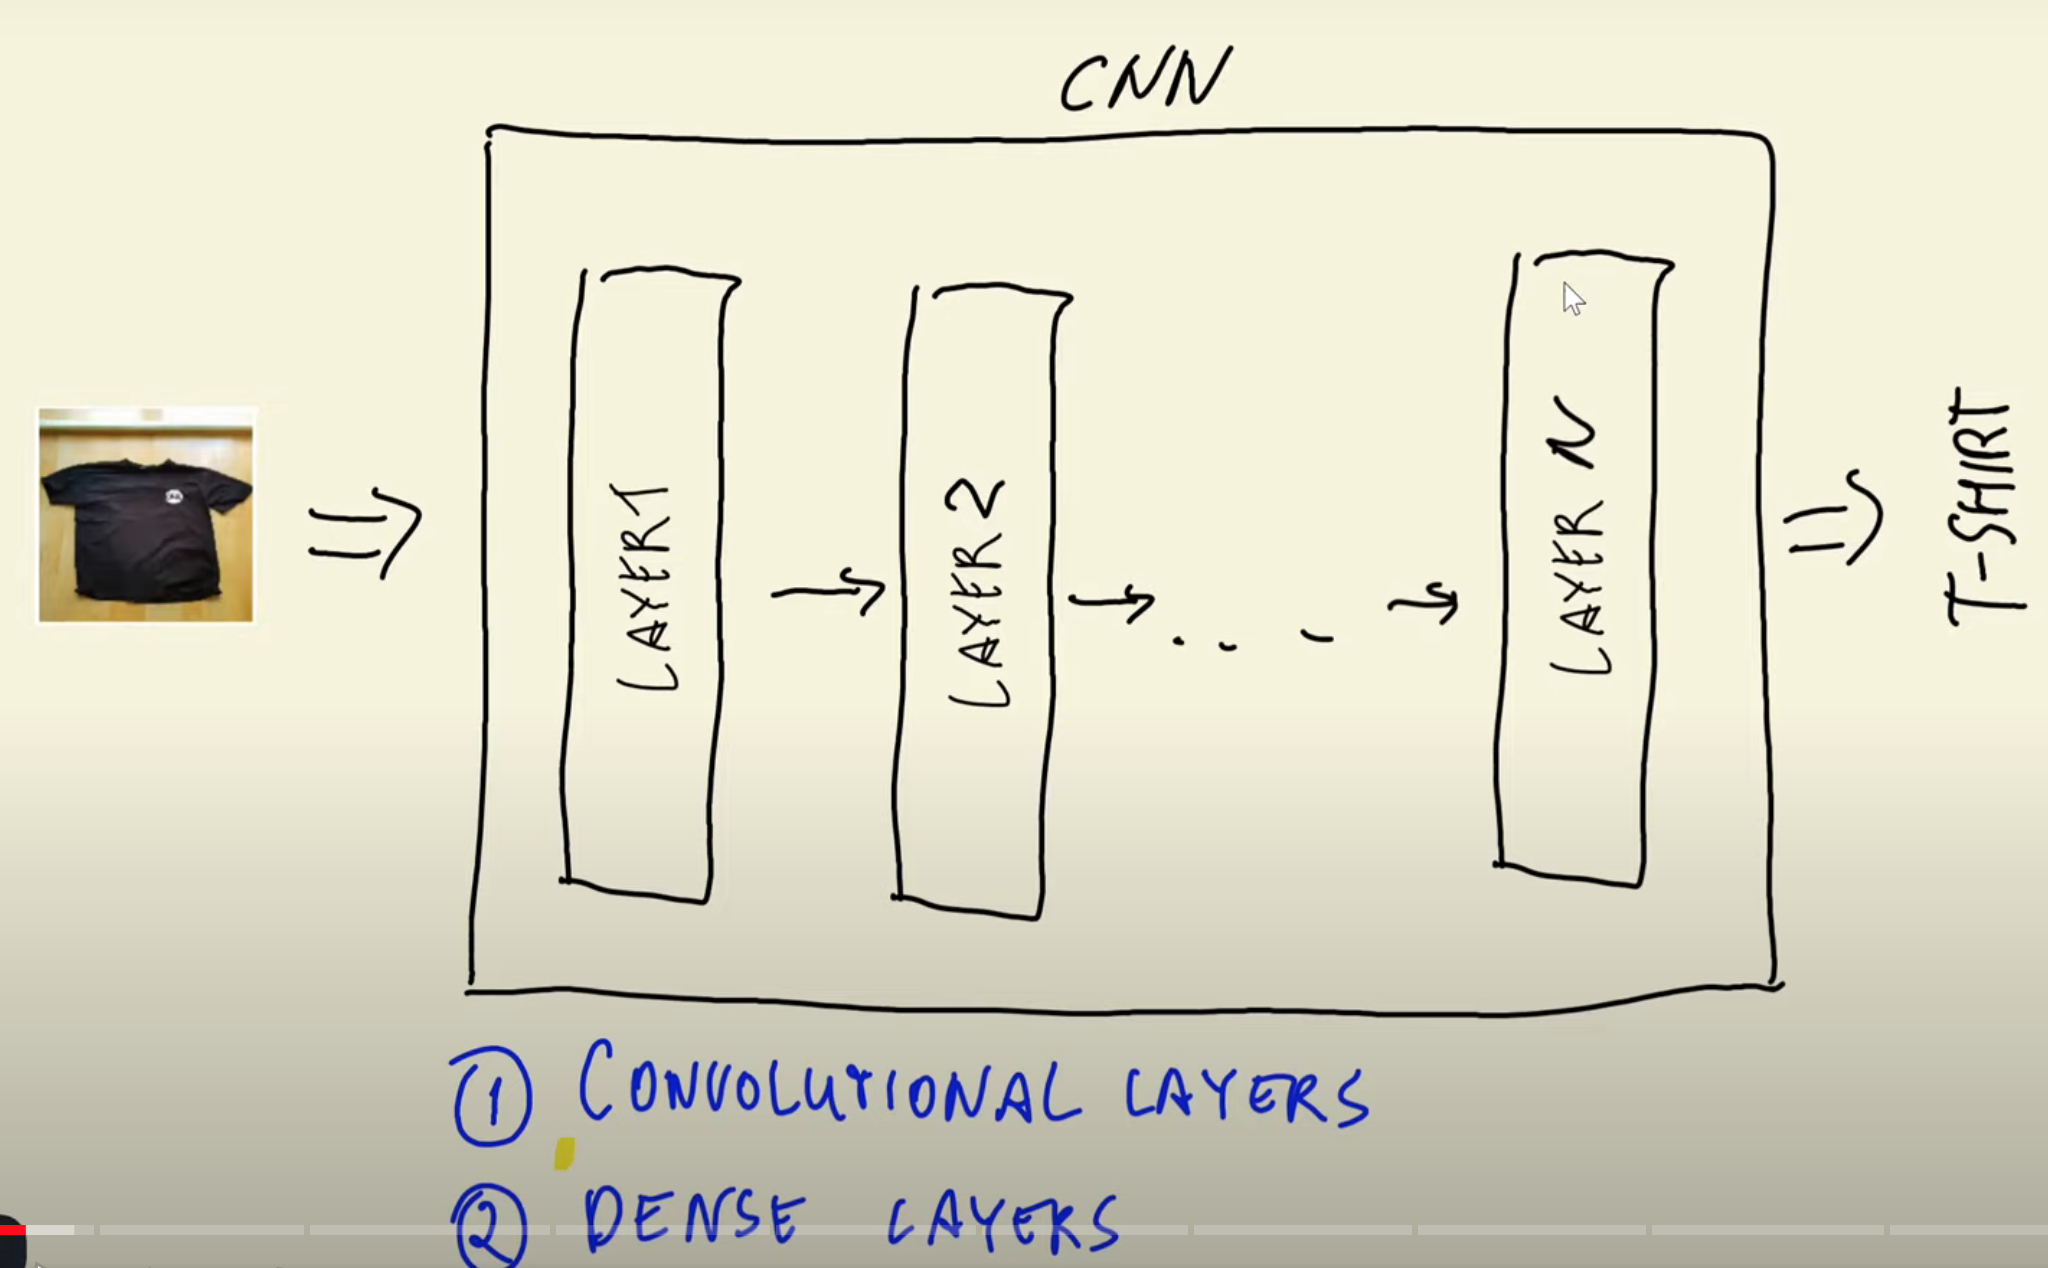 CNN
LAYER 1
LAYER 2
LAYER N
T-SHIRT
1 CONVOLUTIONAL LAYERS
2 DENSE LAYERS